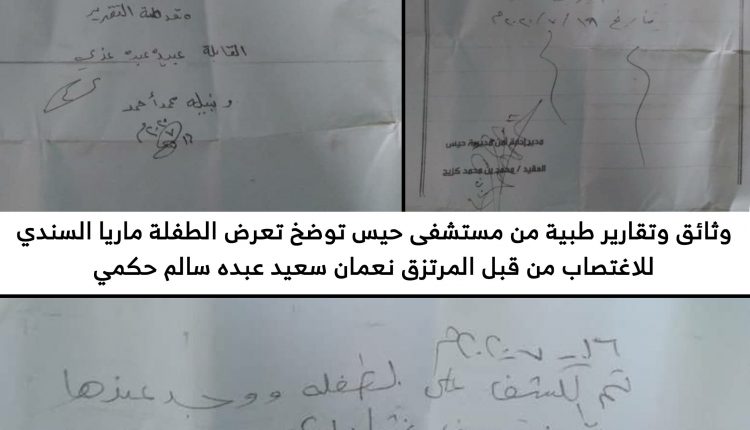 مقدمة التقرير
القابلة عبيده عبده عزي
و نبيله محمد أحمد
بتاريخ ١٦/٧/٢٠٢٠م
مدير إدارة أمن مديرية حيس
العقيد / محمد بن محمد كزيح
وثائق وتقارير طبية من مستشفى حيس توضخ تعرض الطفلة ماريا السندي
للاغتصاب من قبل المرتزق نعمان سعيد عبده سالم حكمي
١٦-٧-٢٠٢٠م
تم الكشف على الطفله ووجد عندها